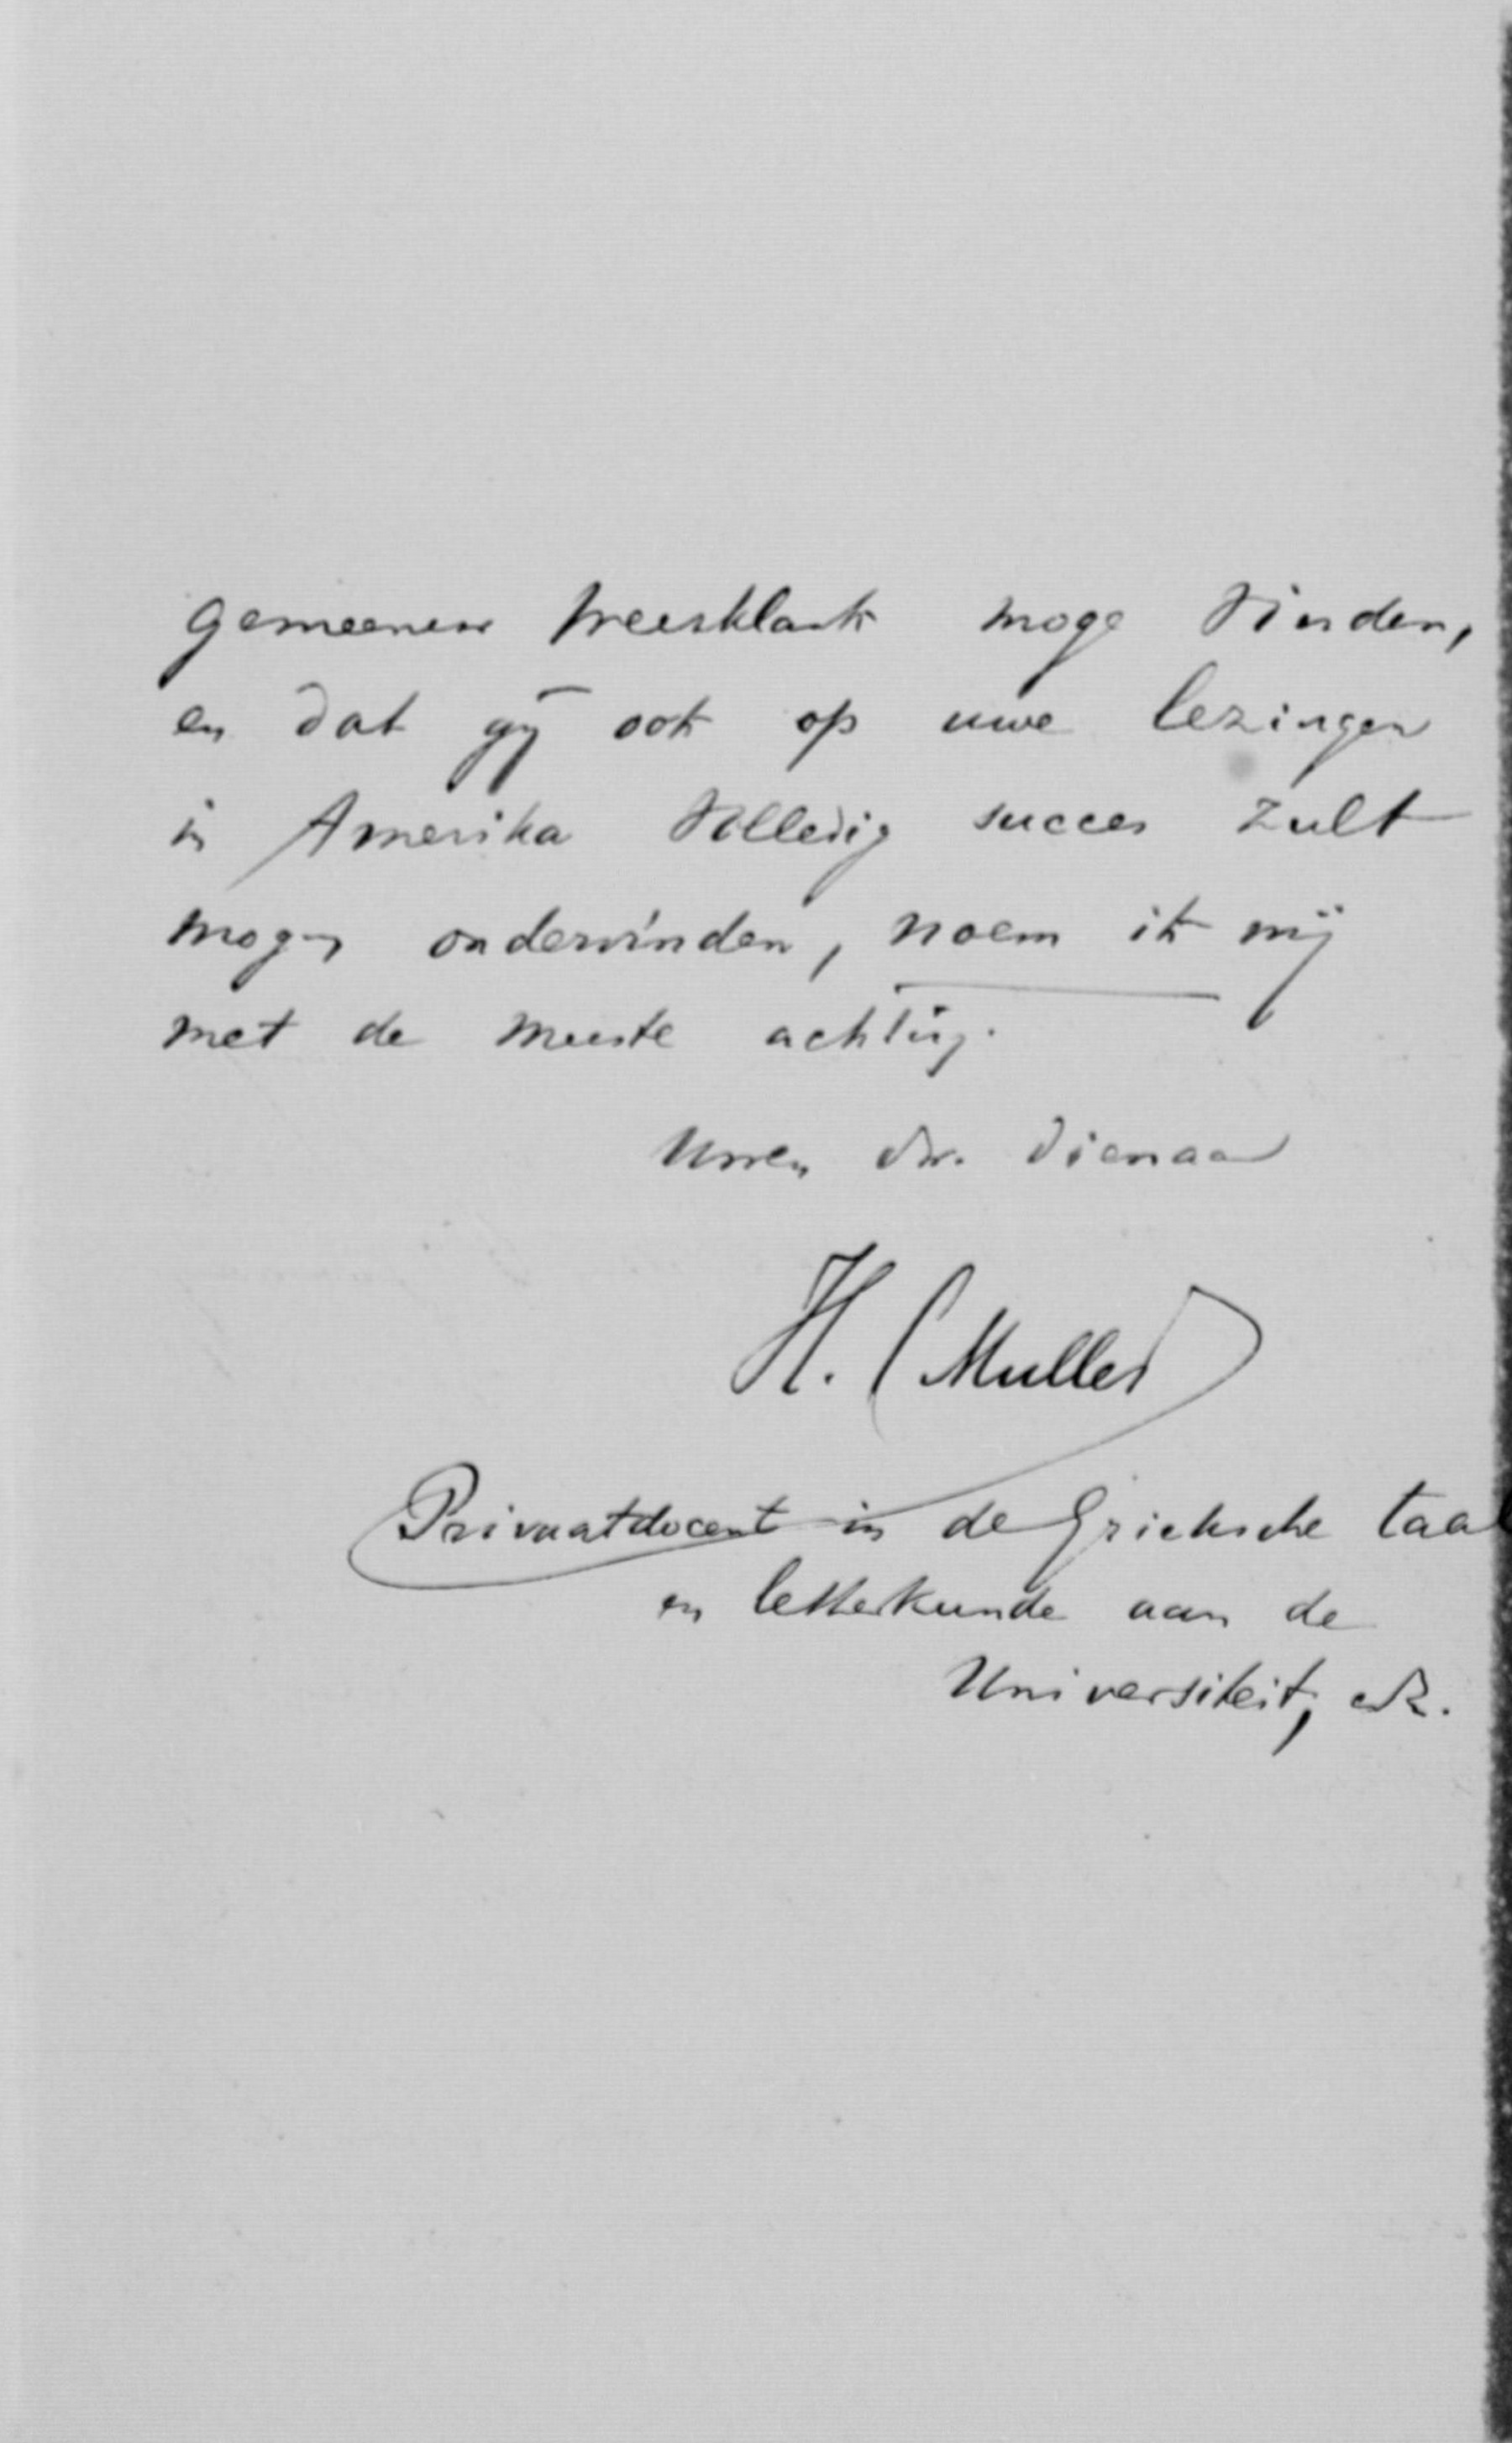 gemeenen weerklank moge vinden,
en dat gij ook op uwe lezingen
in Amerika volledig succes zult
mogen ondervinden, noem ik mij
met de meeste achting.
Uwen dw. dienaar
H. C Muller
Privaatdocent in de Grieksche taal
en letterkunde aan de
Universiteit, etc.